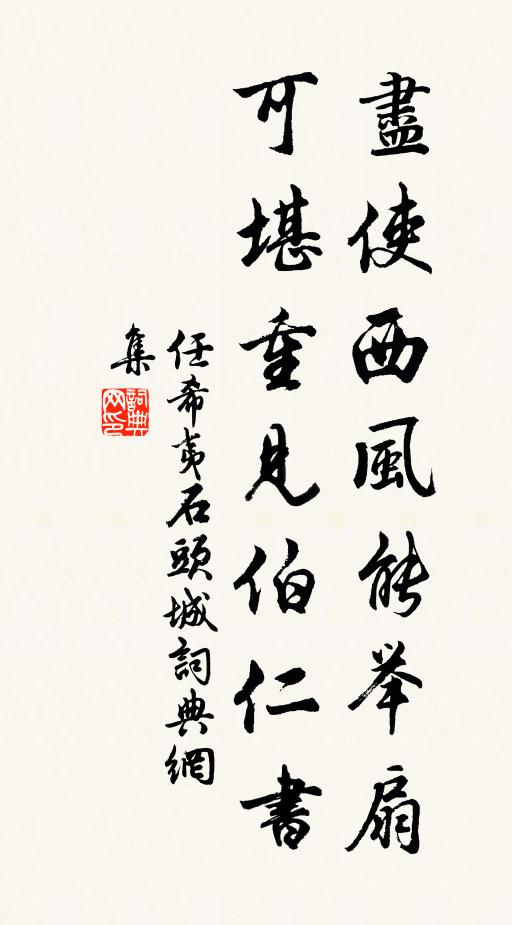 盡使西風能举扇
可堪重見伯仁書
任希夷石頭城詞典網
集
詞典
网印